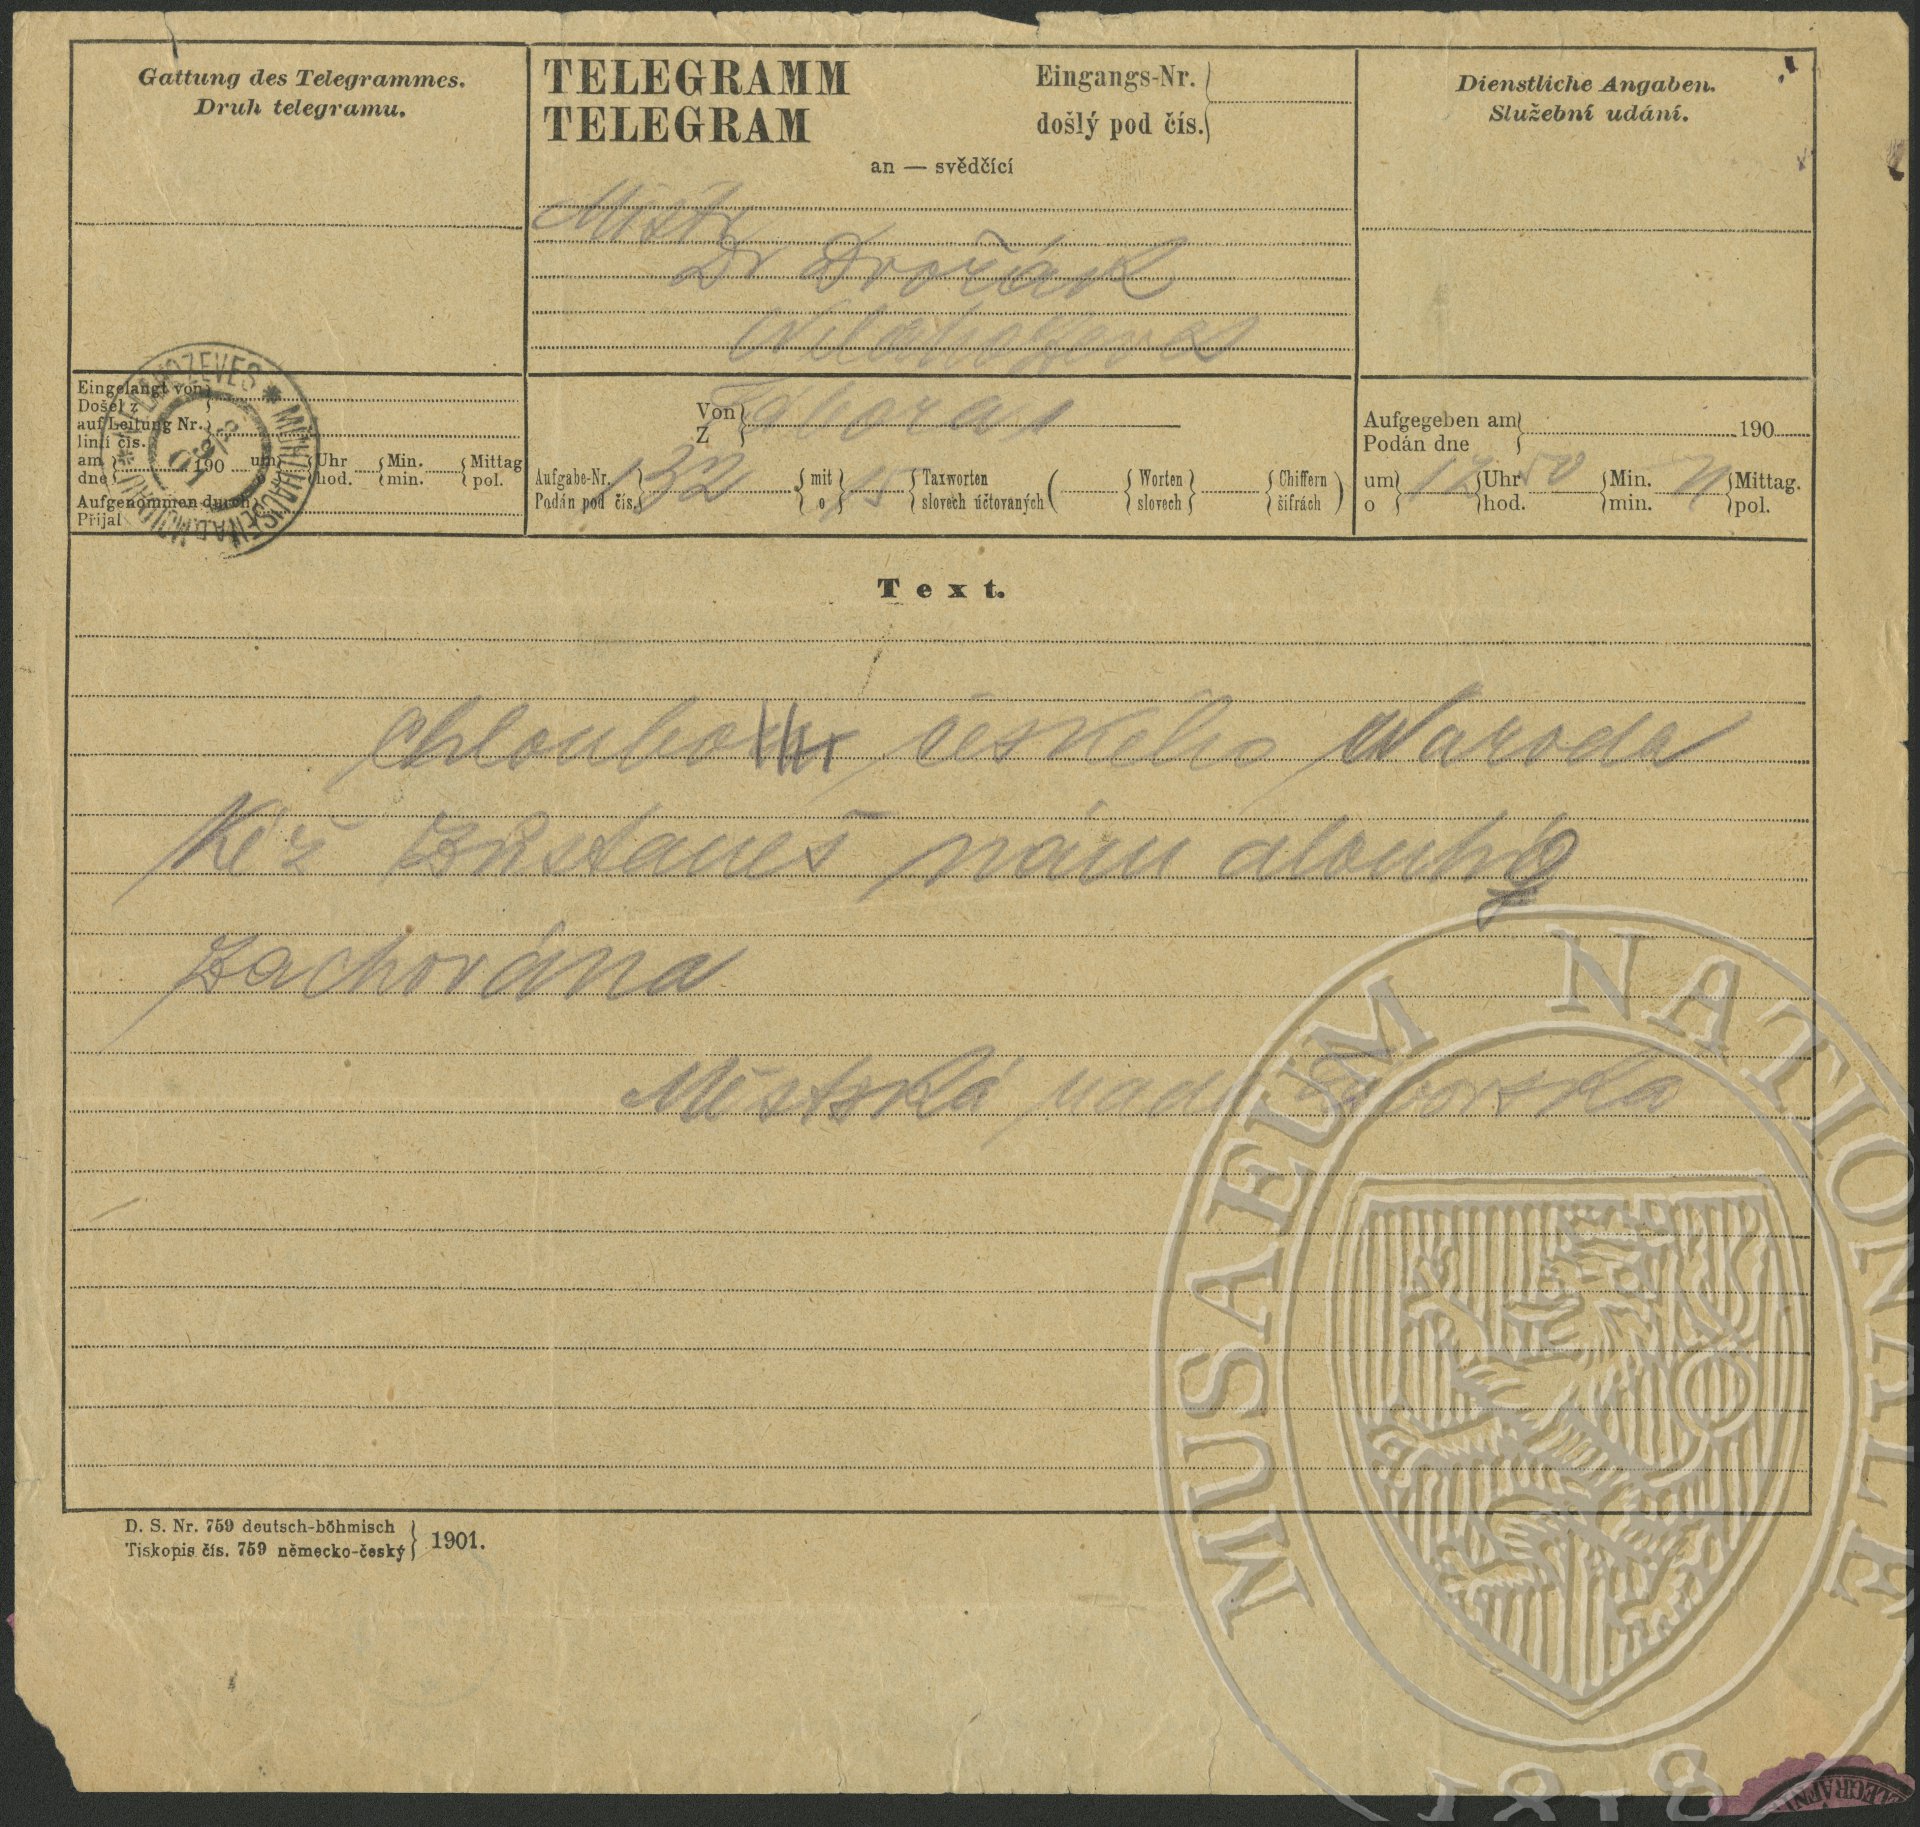 Gattung des Telegrammes.
Druh telegramu.
TELEGRAMM
TELEGRAM
Eingangs-Nr.
došlý pod čís.
an — svědčící
Dienstliche Angaben.
Služební udání.
Mistr
Dr Dvořák
Nelahozeves
NELAHOZEVES * MÜHLHAUSEN A.D. MOLDAU *
Eingelangt von
Došel z
auf Leitung Nr.
linii čís.
am 190 um Uhr Min. Mittag
dne o hod. min. pol.
Aufgenommen durch
Přijal
Von
Z
Aufgabe-Nr. 132 mit 15 Taxworten ( Worten Chiffern )
Podán pod čís. o slovech účtovaných slovech šifrách
Aufgegeben am 190
Podán dne
um 12 Uhr 50 Min. Mittag.
o hod. min. pol.
Text.
Chloubo českého Naroda
Kéž Zůstaneš nám dlouho
Zachována
Městská rada
D. S. Nr. 759 deutsch-böhmisch
Tiskopis čís. 759 německo-český
1901.
MUSAEUM NATIONALE
1818